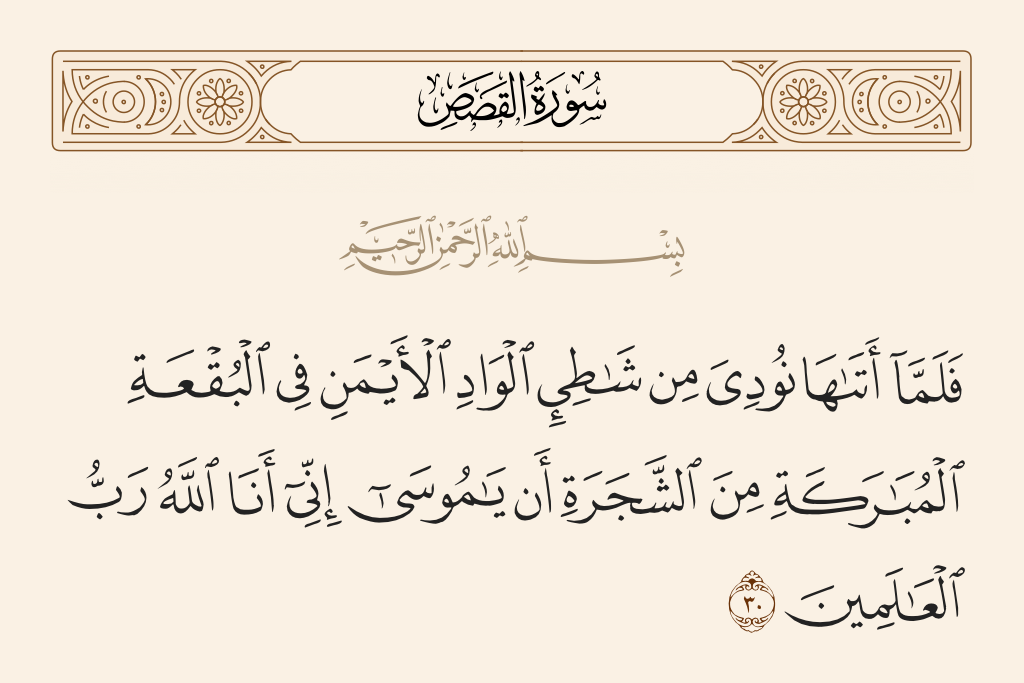 سُورَةُ القَصَصِ
بِسْمِ ٱللَّهِ ٱلرَّحْمَٰنِ ٱلرَّحِيمِ
فَلَمَّآ أَتَىٰهَا نُودِىَ مِن شَٰطِئِ ٱلْوَادِ ٱلْأَيْمَنِ فِى ٱلْبُقْعَةِ
ٱلْمُبَٰرَكَةِ مِنَ ٱلشَّجَرَةِ أَن يَٰمُوسَىٰٓ إِنِّىٓ أَنَا ٱللَّهُ رَبُّ
ٱلْعَٰلَمِينَ ٣٠